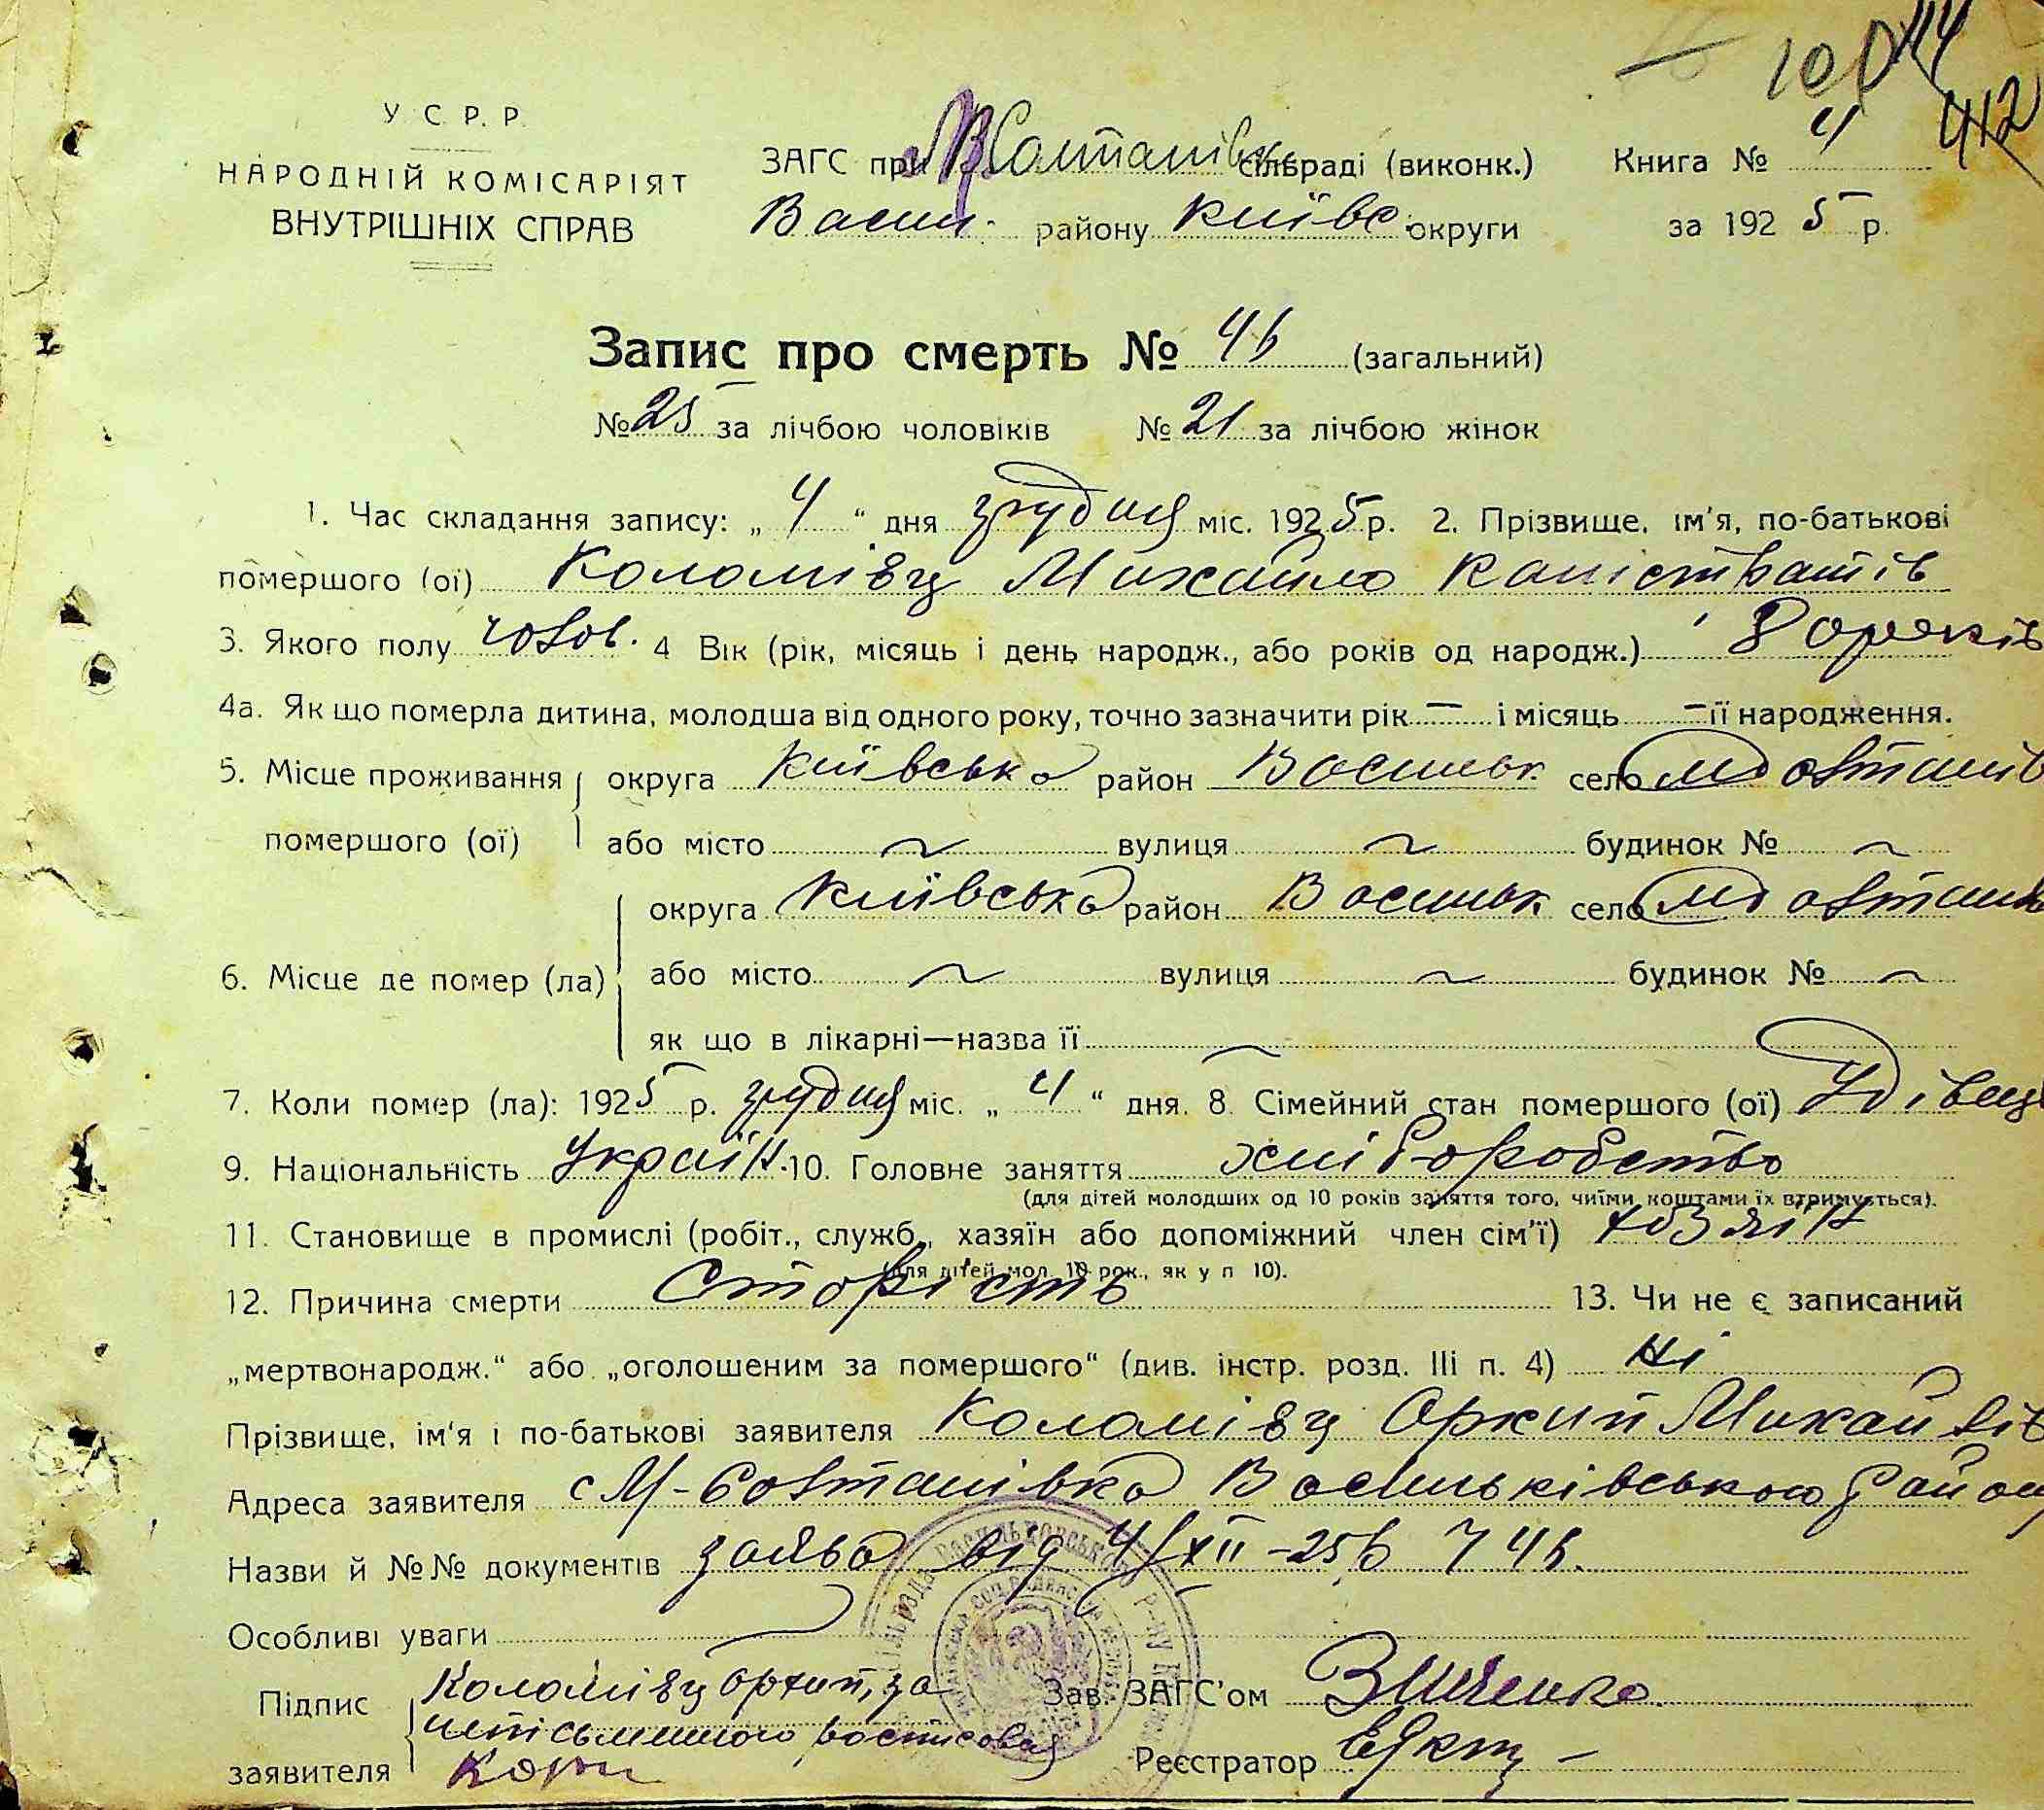 100 114
412
У С. Р. Р.
НАРОДНІЙ КОМІСАРІЯТ
ВНУТРІШНІХ СПРАВ
ЗАГС при М Солтанівк сільраді (виконк.)
Васил. району Київс. округи
Книга № 4
за 1925 р.
Запис про смерть № 46 (загальний)
№ 25 за лічбою чоловіків № 21 за лічбою жінок
1. Час складання запису: „ 4 “ дня грудня міс. 1925 р. 2. Прізвище, ім'я, по-батькові
помершого (ої) Коломієць Михайло Каністратів
3. Якого полу чолов. 4 Вік (рік, місяць і день народж., або років од народж.) 80 років
4а. Як що померла дитина, молодша від одного року, точно зазначити рік — і місяць — її народження.
5. Місце проживання округа Київська район Васильк село М Солтанів
помершого (ої) або місто ~ вулиця ~ будинок № ~
округа Київська район Васильк село М Солтанів
6. Місце де помер (ла) або місто ~ вулиця ~ будинок № ~
як що в лікарні—назва її ~
7. Коли помер (ла): 1925 р. грудня міс. „ 4 “ дня. 8. Сімейний стан помершого (ої) Удівець
9. Національність Україн. 10. Головне заняття хліборобство
(для дітей молодших од 10 років заняття того, чиїми коштами їх втримується).
11. Становище в промислі (робіт., служб., хазяїн або допоміжний член сім'ї) хозяїн
(для дітей мол. 10 рок., як у п 10).
12. Причина смерти Старість 13. Чи не є записаний
„мертвонародж.“ або „оголошеним за помершого“ (див. інстр. розд. III п. 4) Ні
Прізвище, ім'я і по-батькові заявителя Коломієць Архип Михайлів
Адреса заявителя с М-Солтанівка Васильківського Району
Назви й №№ документів заява від 4/XII-25р 746.
Особливі уваги
Підпис
заявителя
Коломієць Архип, за
неписьменного росписався
Зав. ЗАГС'ом
Реєстратор